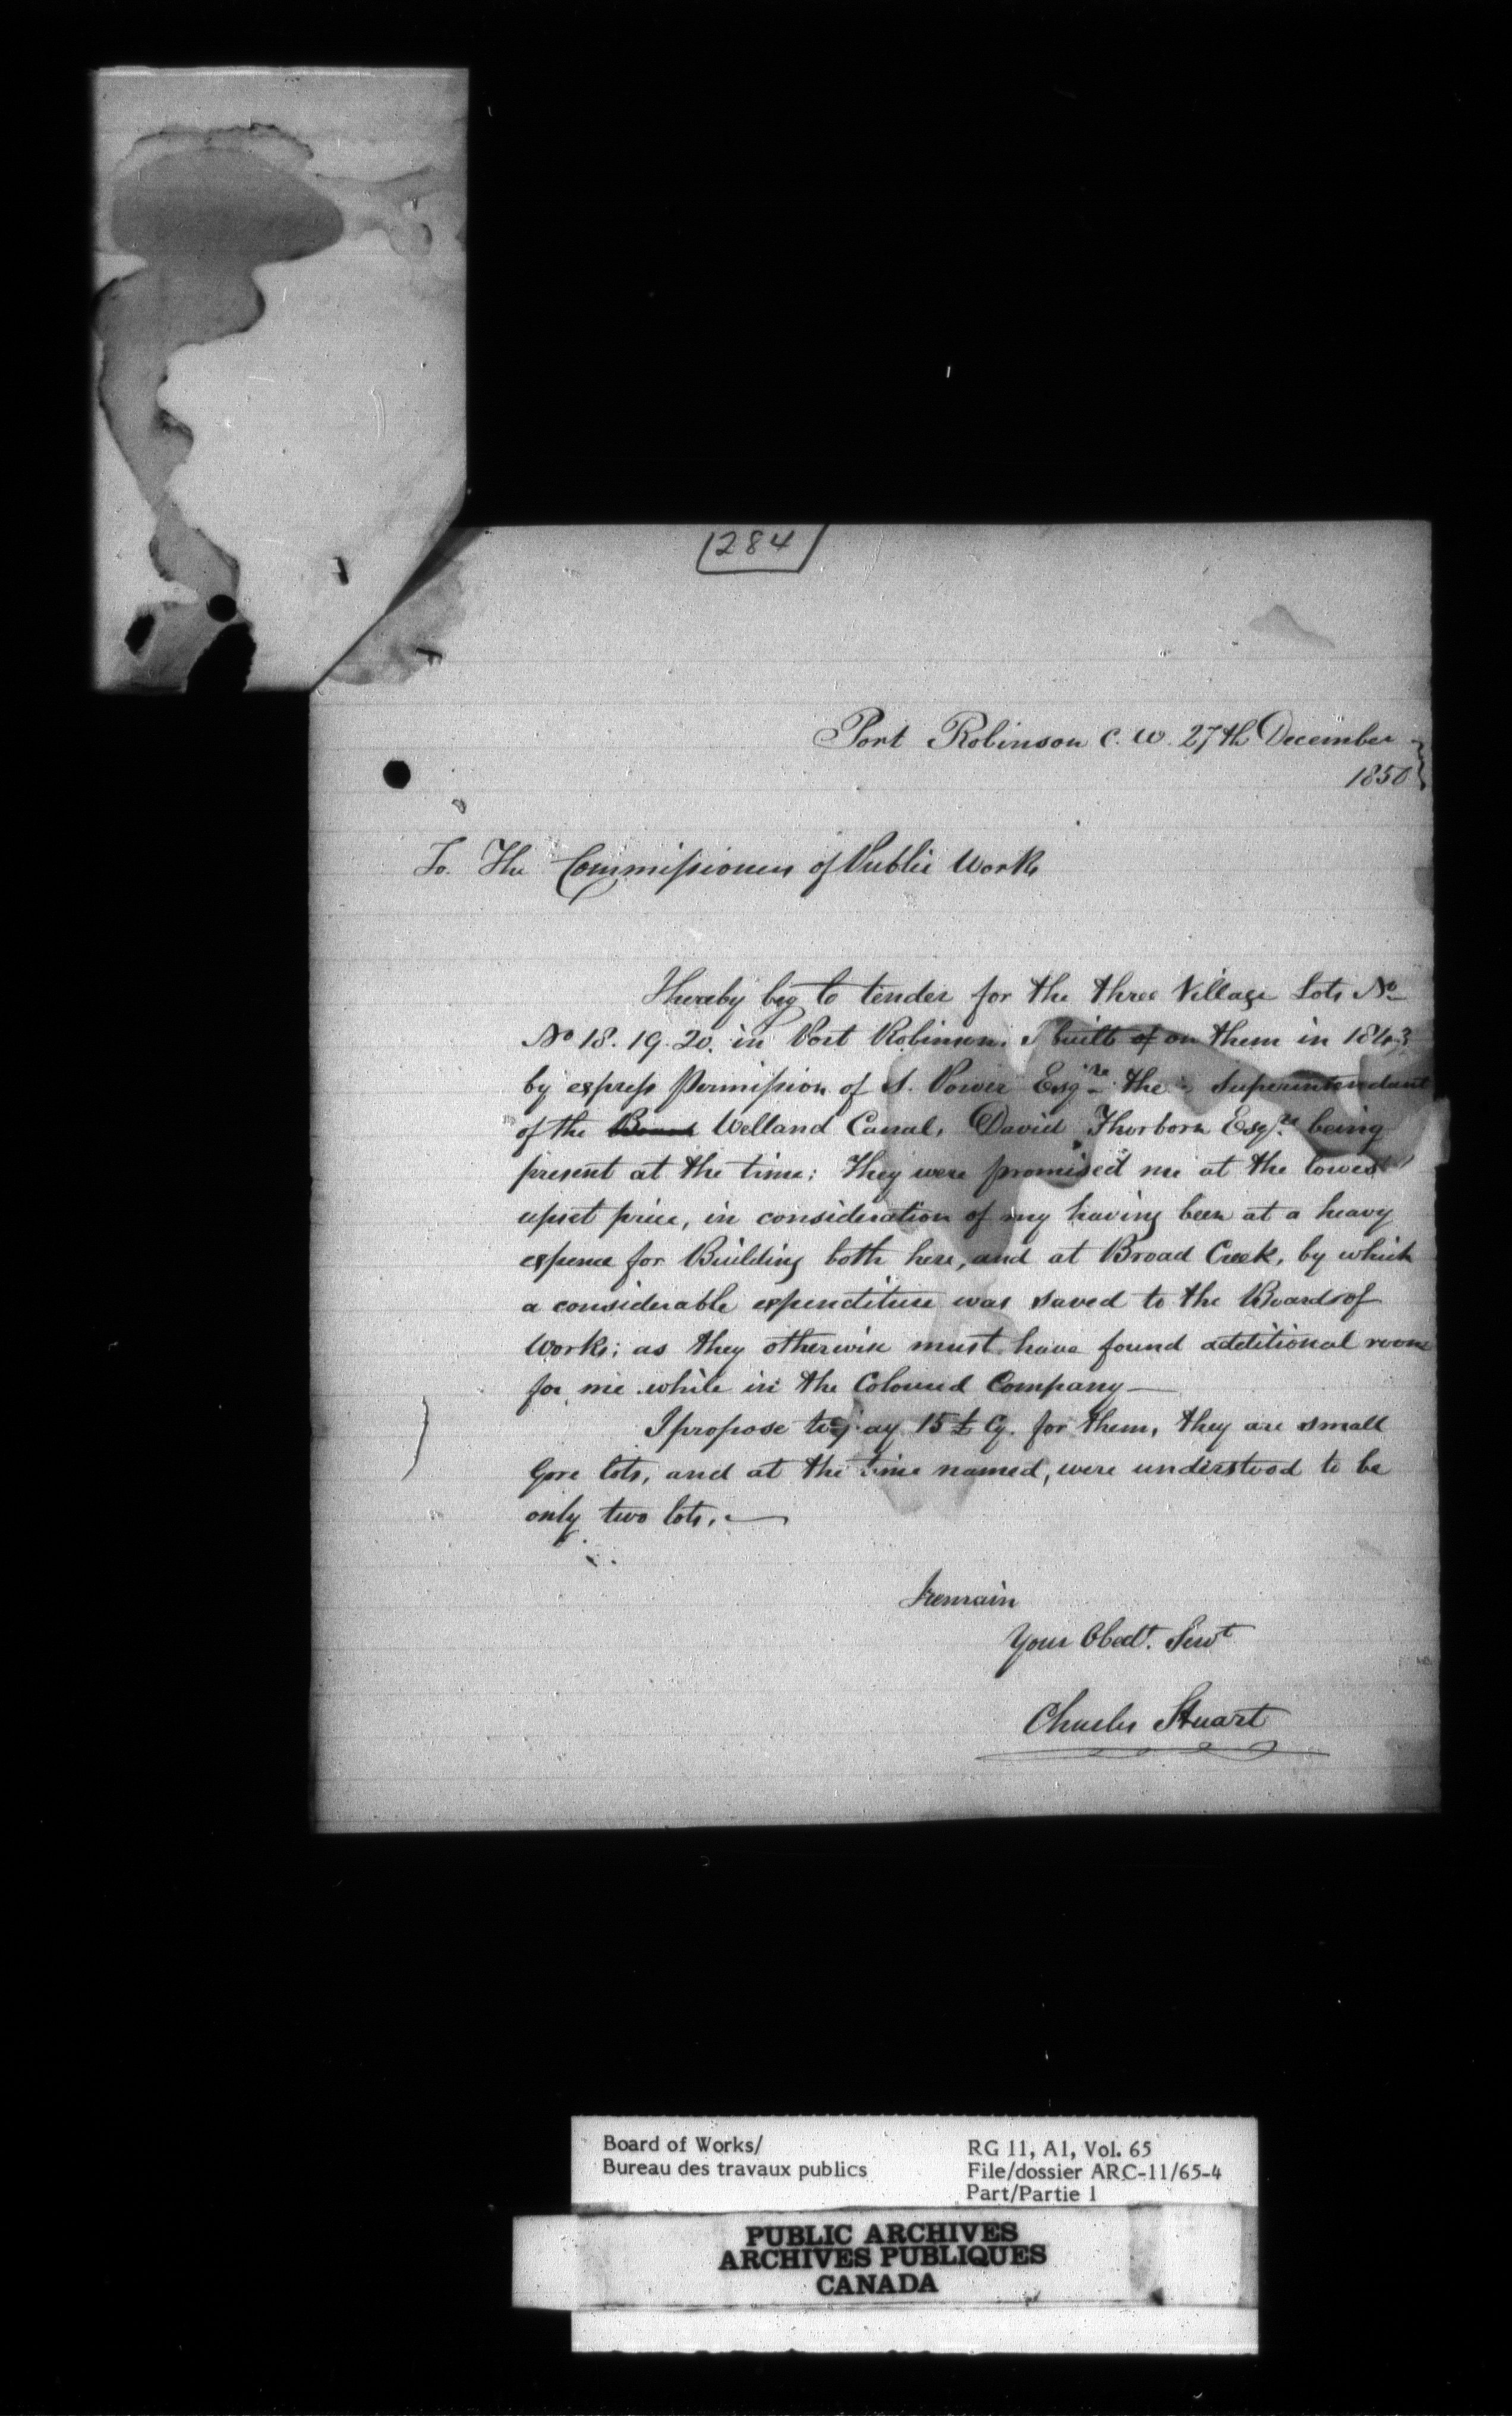 1284
Port Robinson C. W. 27th December
1850
To. The Commissioners of Public Works
I hereby beg to tender for the three Village Lots No
No 18. 19. 20. in Port Robinson. I built of on them in 1843
by express Permission of S. Power Esqre the Superintendant
of the Board Welland Canal, David Thorborn Esqre being
present at the time: They were promised me at the lowest
upset price, in consideration of my having been at a heavy
expence for Building both here, and at Broad Creek, by which
a considerable expenditure was saved to the Board of
Works; as they otherwise must have found additional room
for me while in the Coloured Company—
I propose to pay 15 £ Cy. for them, they are small
Gore lots, and at the time named, were understood to be
only two lots.—
I remain
Your Obedt. Servt
Charles Stuart
Board of Works/ RG 11, A1, Vol. 65
Bureau des travaux publics File/dossier ARC-11/65-4
Part/Partie 1
PUBLIC ARCHIVES
ARCHIVES PUBLIQUES
CANADA